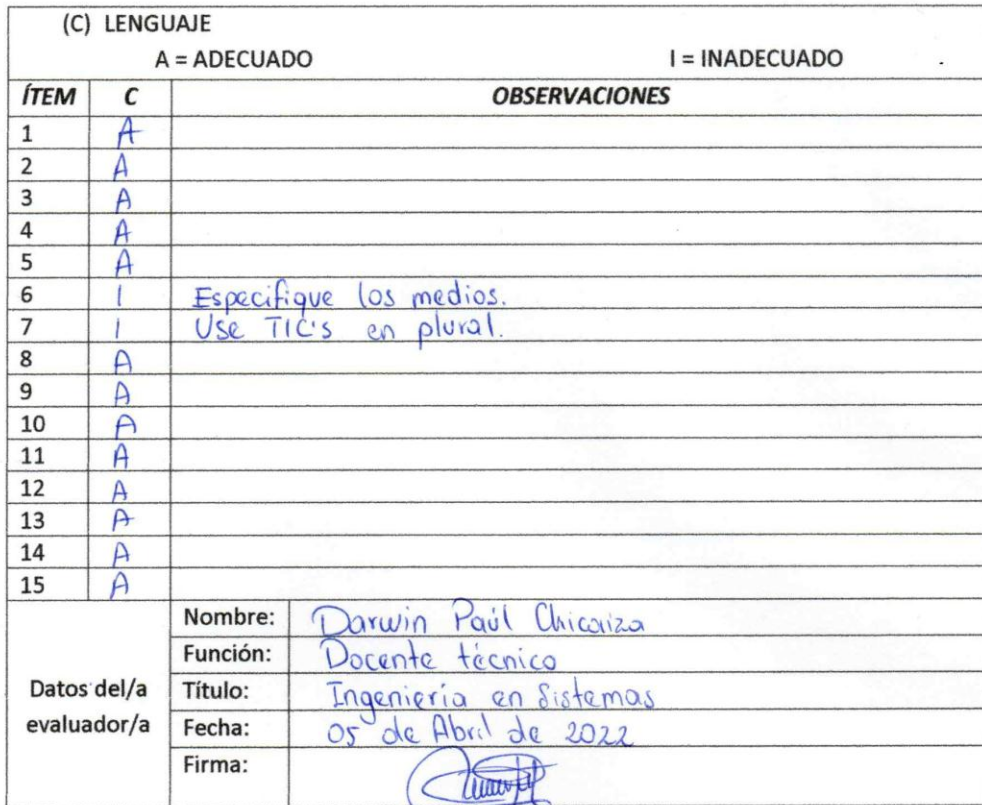 (C) LENGUAJE
A = ADECUADO I = INADECUADO
ÍTEM C OBSERVACIONES
1 A
2 A
3 A
4 A
5 A
6 I Especifique los medios.
7 I Use TIC's en plural.
8 A
9 A
10 A
11 A
12 A
13 A
14 A
15 A
Datos del/a evaluador/a
Nombre: Darwin Paúl Chicaiza
Función: Docente técnico
Título: Ingeniería en Sistemas
Fecha: 05 de Abril de 2022
Firma: